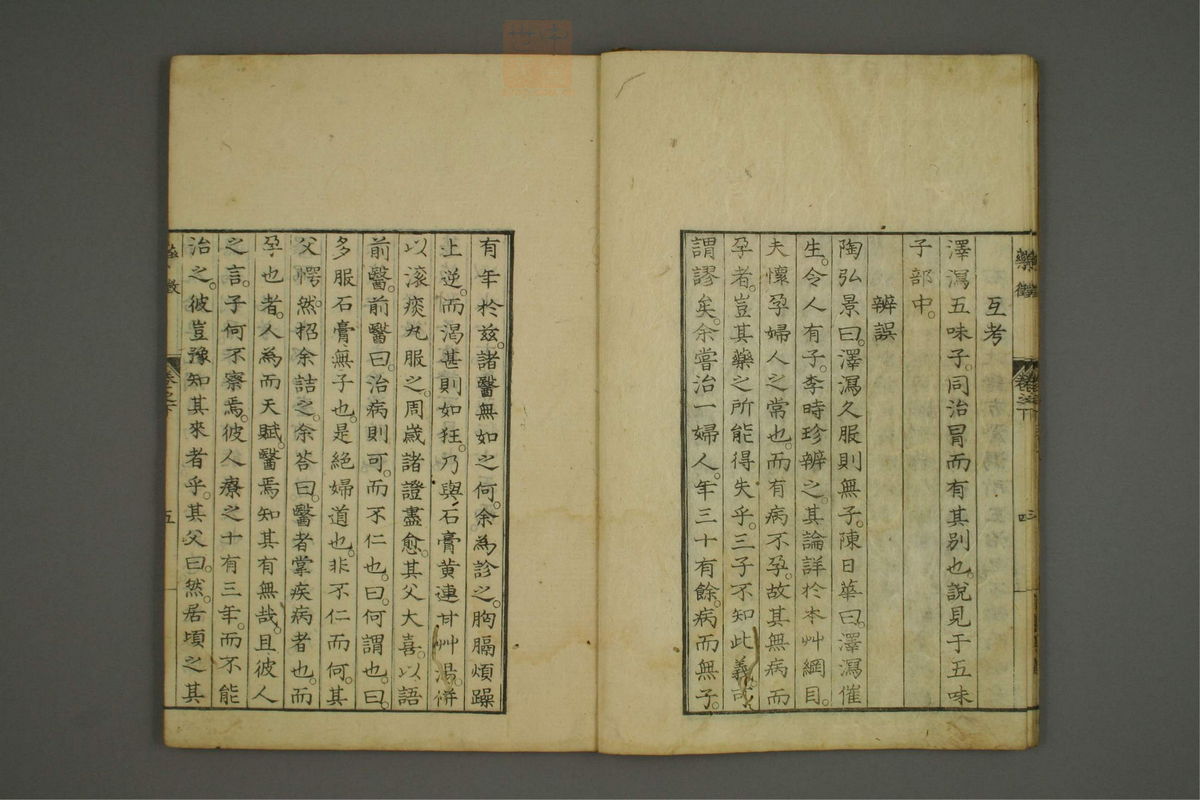 藥徵
卷之下
互考
澤瀉五味子。同治冒而有其別也。說見于五味
子部中。
辨誤
陶弘景曰。澤瀉久服則無子。陳日華曰。澤瀉催
生。令人有子。李時珍辨之。其論詳於本艸綱目。
夫懷孕婦人之常也。而有病不孕。故其無病而
孕者。豈其藥之所能得失乎。三子不知此義可
謂謬矣。余嘗治一婦人。年三十有餘。病而無子。
有年於茲。諸醫無如之何。余為診之。胸膈煩躁
上逆。而渴甚則如狂。乃與石膏黃連甘艸湯。併
以滾痰丸服之。周歲諸證盡愈。其父大喜。以語
前醫。前醫曰。治病則可。而不仁也。曰。何謂也。曰。
多服石膏無子也。是絕婦道也。非不仁而何。其
父愕然。招余詰之。余答曰。醫者掌疾病者也。而
孕也者。人為而天賦。醫焉知其有無哉。且彼人
之言。子何不察焉。彼人療之十有三年。而不能
治之。彼豈豫知其來者乎。其父曰。然。居頃之其
卷之下
五